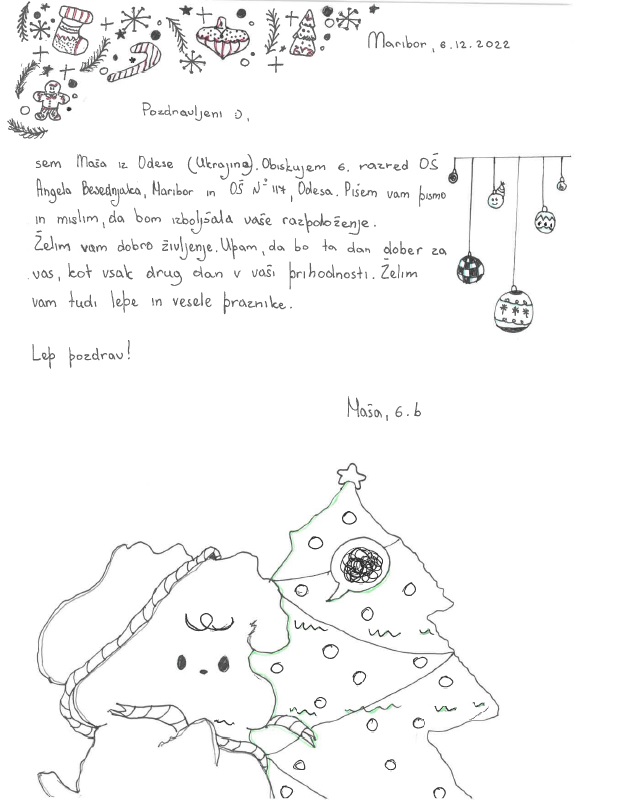 Maribor, 6.12.2022
Pozdravljeni :),
sem Maša iz Odese (Ukrajina). Obiskujem 6. razred OŠ
Angela Besednjaka, Maribor in OŠ №117, Odesa. Pišem vam pismo
in mislim, da bom izboljšala vaše razpoloženje.
Želim vam dobro življenje. Upam, da bo ta dan dober za
vas, kot vsak drug dan v vaši prihodnosti. Želim
vam tudi lepe in vesele praznike.
Lep pozdrav!
Maša, 6.b